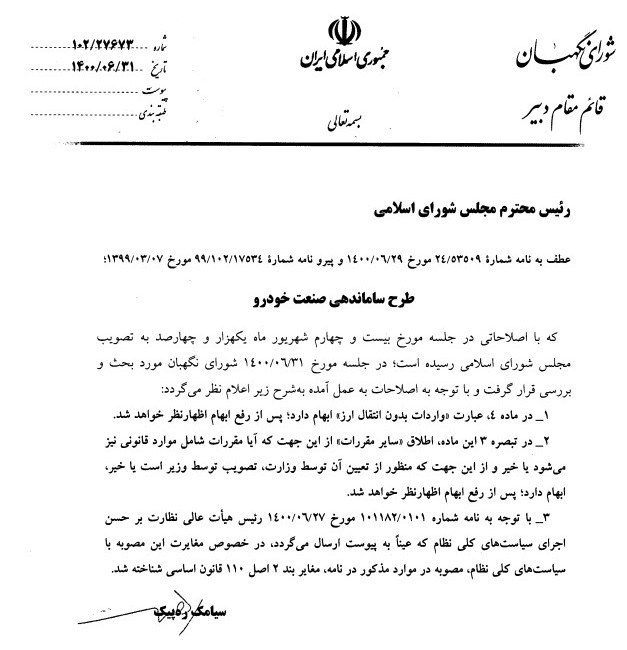 شماره ۱۰۲/۲۷۶۷۳
تاریخ ۱۴۰۰/۰۶/۳۱
پیوست
طبقه‌بندی
جمهوری اسلامی ایران
بسمه تعالی
شورای نگهبان
قائم مقام دبیر
رئیس محترم مجلس شورای اسلامی
عطف به نامه شمارهٔ ۲۴/۵۳۵۰۹ مورخ ۱۴۰۰/۰۶/۲۹ و پیرو نامه شمارهٔ ۹۹/۱۰۲/۱۷۵۳۴ مورخ ۱۳۹۹/۰۳/۰۷؛
طرح ساماندهی صنعت خودرو
که با اصلاحاتی در جلسه مورخ بیست و چهارم شهریور ماه یکهزار و چهارصد به تصویب
مجلس شورای اسلامی رسیده است؛ در جلسه مورخ ۱۴۰۰/۰۶/۳۱ شورای نگهبان مورد بحث و
بررسی قرار گرفت و با توجه به اصلاحات به عمل آمده به‌شرح زیر اعلام نظر می‌گردد:
۱_ در ماده ۴، عبارت «واردات بدون انتقال ارز» ابهام دارد؛ پس از رفع ابهام اظهارنظر خواهد شد.
۲_ در تبصره ۳ این ماده، اطلاق «سایر مقررات» از این جهت که آیا مقررات شامل موارد قانونی نیز
می‌شود یا خیر و از این جهت که منظور از تعیین آن توسط وزارت، تصویب توسط وزیر است یا خیر،
ابهام دارد؛ پس از رفع ابهام اظهارنظر خواهد شد.
۳_ با توجه به نامه شماره ۱۰۱۱۸۲/۰۱۰۱ مورخ ۱۴۰۰/۰۶/۲۷ رئیس هیأت عالی نظارت بر حسن
اجرای سیاست‌های کلی نظام که عیناً به پیوست ارسال می‌گردد، در خصوص مغایرت این مصوبه با
سیاست‌های کلی نظام، مصوبه در موارد مذکور در نامه، مغایر بند ۲ اصل ۱۱۰ قانون اساسی شناخته شد.
سیامک ره‌پیک